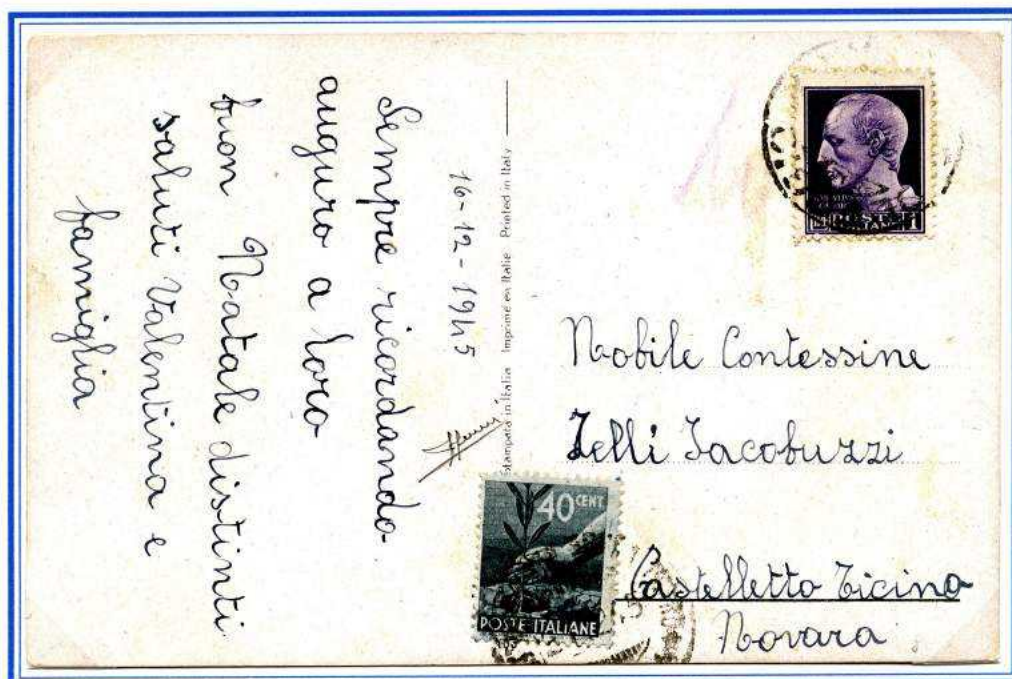 16-12-1945
Sempre ricordando
auguro a loro
buon Natale distinti
saluti Valentina e
famiglia
Stampata in Italia Imprimé en Italie Printed in Italy
POSTE
ITALIANE
Nobile Contessine
Zelli Jacobuzzi
Castelletto Ticino
Novara
40 CENT.
POSTE ITALIANE